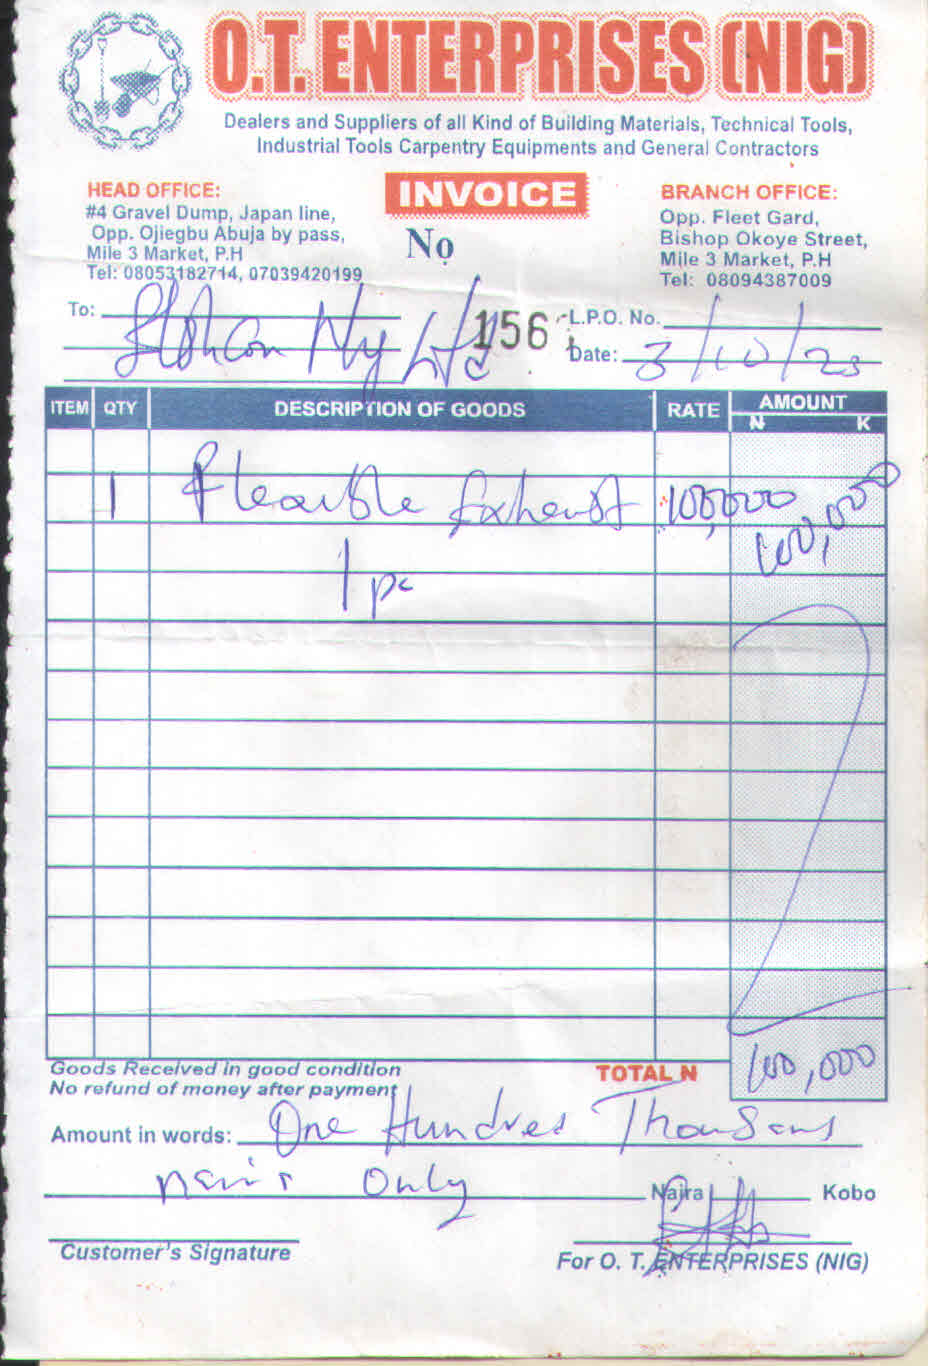 O.T. ENTERPRISES (NIG)
Dealers and Suppliers of all Kind of Building Materials, Technical Tools,
Industrial Tools Carpentry Equipments and General Contractors
HEAD OFFICE:
#4 Gravel Dump, Japan line,
Opp. Ojiegbu Abuja by pass,
Mile 3 Market, P.H
Tel: 08053182714, 07039420199
INVOICE
No
BRANCH OFFICE:
Opp. Fleet Gard,
Bishop Okoye Street,
Mile 3 Market, P.H
Tel: 08094387009
To: Nig Ltd
156
L.P.O. No.
Date: 3/10/23
ITEM QTY DESCRIPTION OF GOODS RATE AMOUNT
N K
1 Exhaust 100,000 100,000
1 pc
Goods Received in good condition
No refund of money after payment
TOTAL N 100,000
Amount in words: One Hundred Thousand
naira Only Naira Kobo
Customer's Signature
For O. T. ENTERPRISES (NIG)